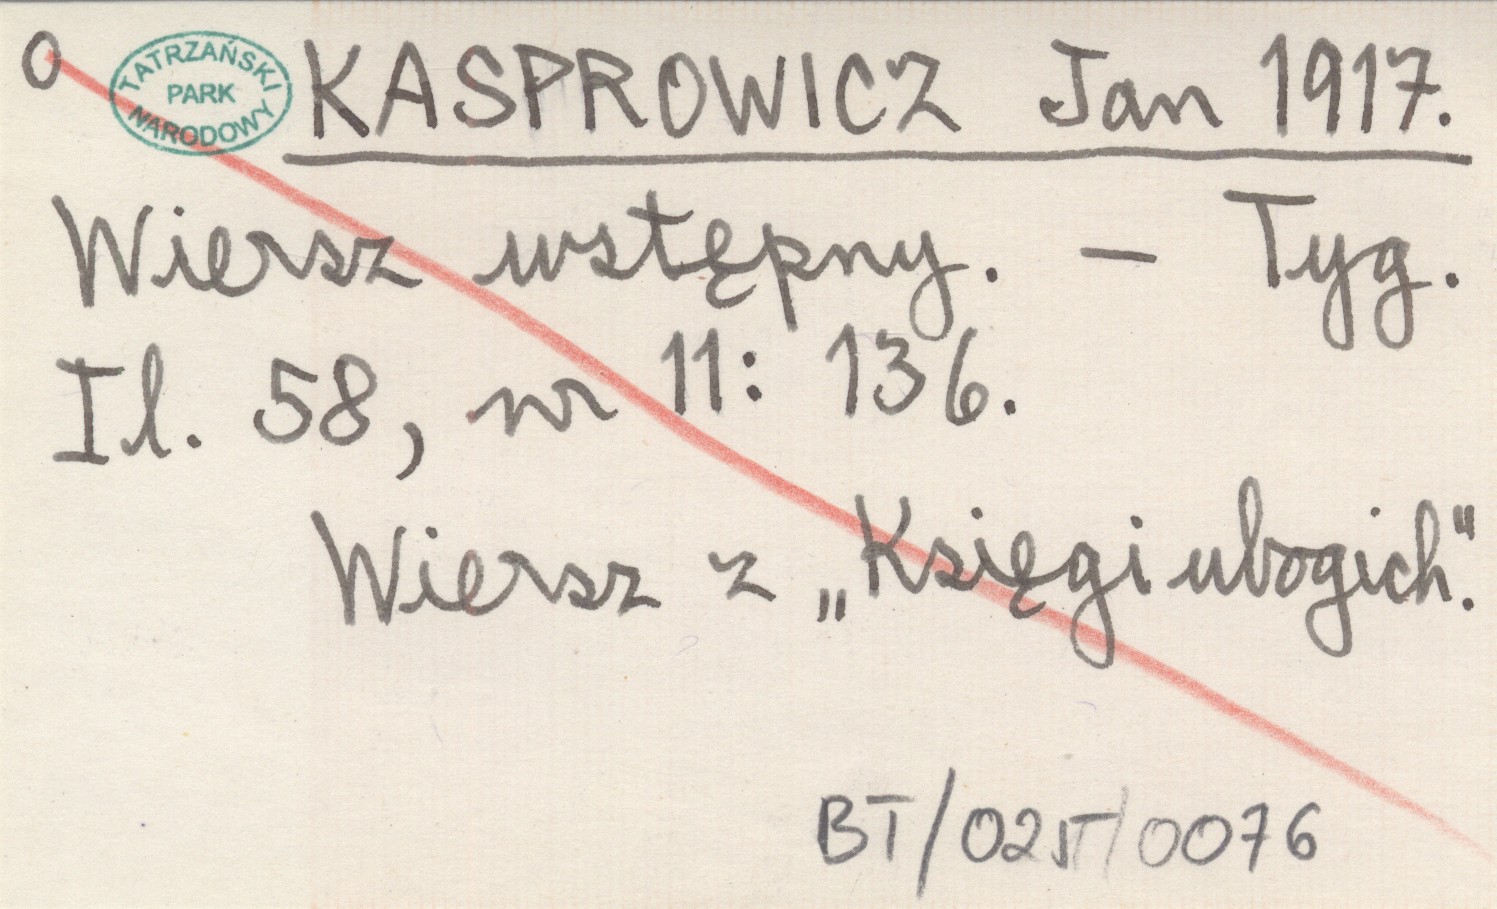 O
TATRZAŃSKI
PARK
NARODOWY
KASPROWICZ Jan 1917.
Wiersz wstępny. — Tyg.
Il. 58, nr 11: 136.
Wiersz z „Księgi ubogich".
BT/025/0076